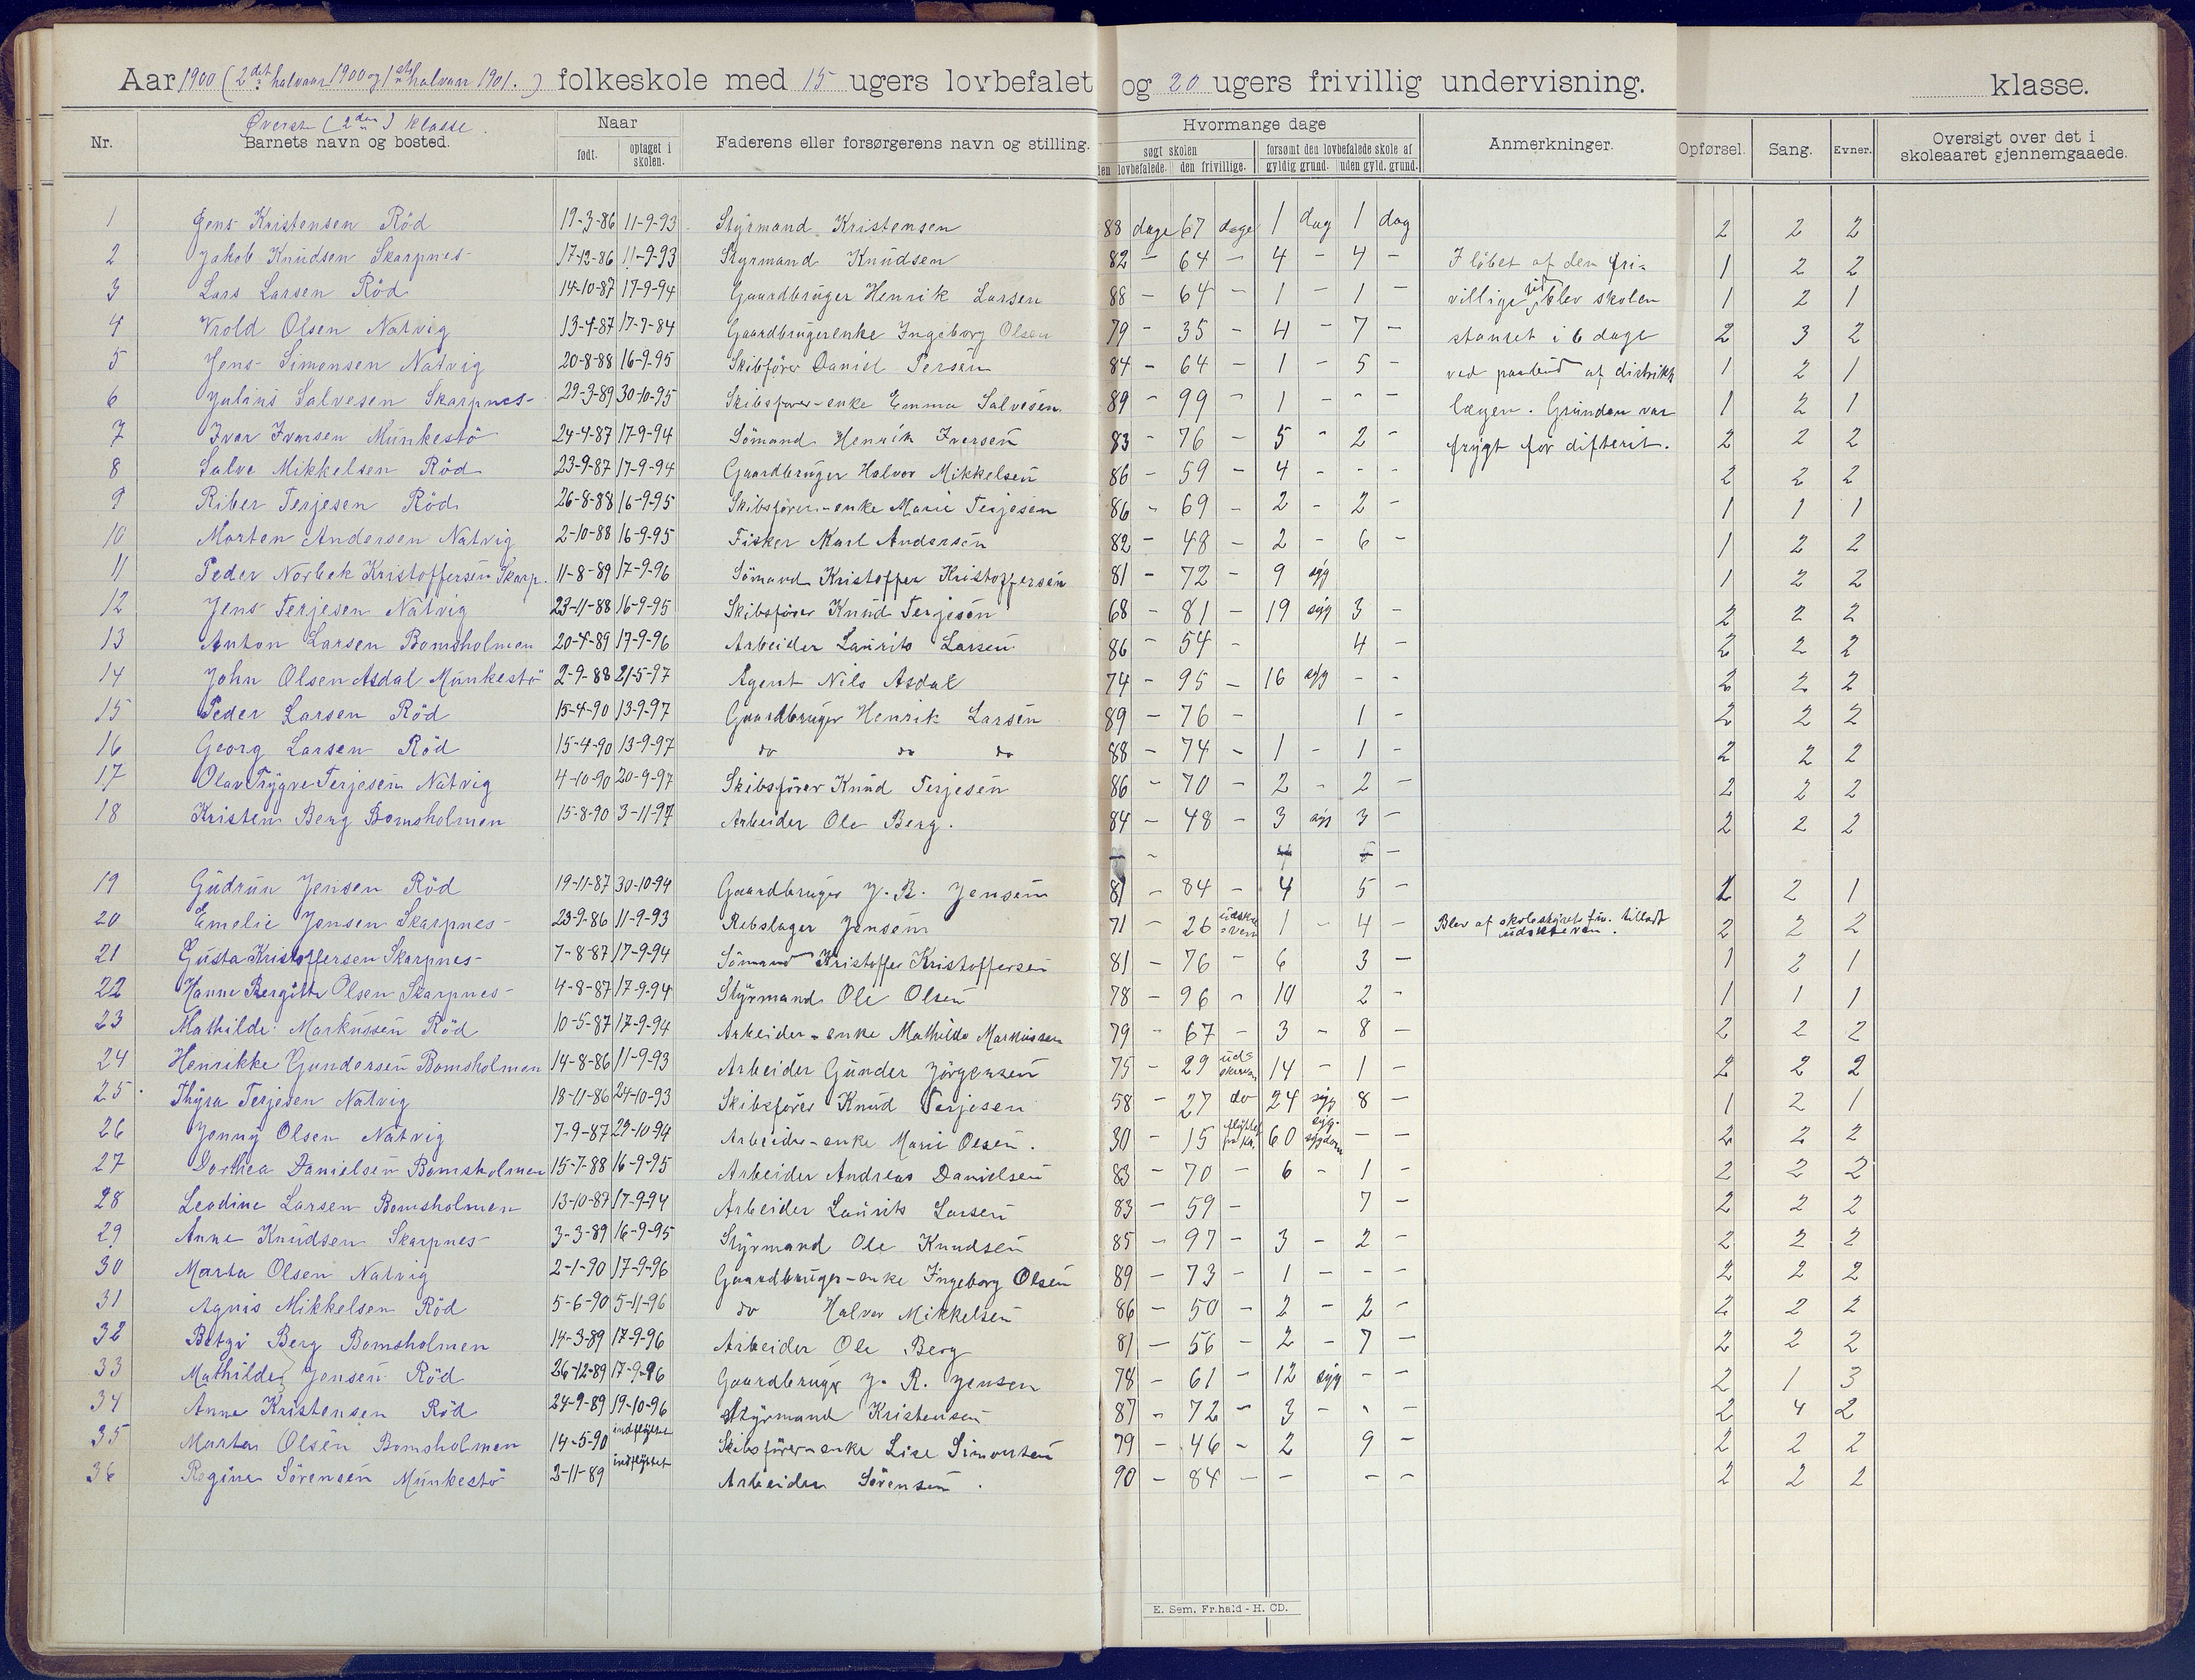 Aar 1900 (2det halvaar 1900 og 1ste halvaar 1901.) folkeskole med 15 ugers lovbefalet og 20 ugers frivillig undervisning. klasse.
Øverste (2den) klasse.
Nr. Barnets navn og bosted. Naar født. optaget i skolen. Faderens eller forsørgerens navn og stilling. Hvormange dage søgt skolen den lovbefalede. den frivillige. forsømt den lovbefalede skole af gyldig grund. uden gyld. grund. Anmerkninger. Opførsel. Sang. Evner. Oversigt over det i skoleaaret gjennemgaaede.
1 Jens Kristensen Röd 19-3-86 11-9-93 Styrmand Kristensen 88 dage 67 dage 1 dag 1 dag 2 2 2
2 Jakob Knudsen Skarpnes 17-12-86 11-9-93 Styrmand Knudsen 82 - 64 - 4 - 4 - I löbet af den fri- 1 2 2
3 Lars Larsen Röd 14-10-87 17-9-94 Gaardbruger Henrik Larsen 88 - 64 - 1 - 1 - villige tid blev skolen 1 2 1
4 Vrold Olsen Natvig 13-4-87 17-9-84 Gaardbrugerenke Ingeborg Olsen 79 - 35 - 4 - 7 - stanset i 6 dage 2 3 2
5 Jens Simonsen Natvig 20-8-88 16-9-95 Skibförer Daniel Persen 84 - 64 - 1 - 5 - ved paabud af distrikts 1 2 1
6 Julius Salvesen Skarpnes 29-3-89 30-10-95 Skibsförer-enke Emma Salvesen 89 - 99 - 1 - - - lægen. Grunden var 1 2 1
7 Ivar Ivarsen Munkestö 24-4-87 17-9-94 Sömand Henrik Iversen 83 - 76 - 5 - 2 - frygt for difterit. 2 2 2
8 Salve Mikkelsen Röd 23-9-87 17-9-94 Gaardbruger Halvor Mikkelsen 86 - 59 - 4 - - - 2 2 2
9 Riber Terjesen Röd 26-8-88 16-9-95 Skibsförer-enke Marie Terjesen 86 - 69 - 2 - 2 - 1 1 1
10 Morten Andersen Natvig 2-10-88 16-9-95 Fisker Karl Andersen 82 - 48 - 2 - 6 - 1 2 2
11 Peder Norbek Kristoffersen Skarp. 11-8-89 17-9-96 Sömand Kristoffer Kristoffersen 81 - 72 - 9 syg 1 2 2
12 Jens Terjesen Natvig 23-11-88 16-9-95 Skibsförer Knud Terjesen 68 - 81 - 19 syg 3 - 2 2 2
13 Anton Larsen Bomsholmen 20-4-89 17-9-96 Arbeider Laurits Larsen 86 - 54 - 4 - 2 2 2
14 John Olsen Asdal Munkestö 2-9-88 21-5-97 Agent Nils Asdal 74 - 95 - 16 syg - - 2 2 2
15 Peder Larsen Röd 15-4-90 13-9-97 Gaardbruger Henrik Larsen 89 - 76 - 1 - 2 2 2
16 Georg Larsen Röd 15-4-90 13-9-97 do do do 88 - 74 - 1 - 1 - 2 2 2
17 Olav Trygve Terjesen Natvig 4-10-90 20-9-97 Skibsförer Knud Terjesen 86 - 70 - 2 - 2 - 2 2 2
18 Kristen Berg Bomsholmen 15-8-90 3-11-97 Arbeider Ole Berg. 84 - 48 - 3 syg 3 - 2 2 2
19 Gudrun Jensen Röd 19-11-87 30-10-94 Gaardbruger J. R. Jensen 81 - 84 - 4 5 - 2 2 1
20 Emelie Jensen Skarpnes 23-9-86 11-9-93 Rebslager Jensen 71 - 26 1 - 4 - Blev af skolestyrets tilladt udskreven. 2 2 2
21 Gusta Kristoffersen Skarpnes 7-8-87 17-9-94 Sömand Kristoffer Kristoffersen 81 - 76 - 6 3 - 1 2 1
22 Hanne Bergitte Olsen Skarpnes 4-8-87 17-9-94 Styrmand Ole Olsen 78 - 96 - 10 2 - 1 1 1
23 Mathilde Markussen Röd 10-5-87 17-9-94 Arbeider-enke Mathilde Markussen 79 - 67 - 3 - 8 - 2 2 2
24 Henrikke Gundersen Bomsholmen 14-8-86 11-9-93 Arbeider Gunder Jörgensen 75 - 29 udskreven 14 - 1 - 2 2 2
25 Thyra Terjesen Natvig 18-11-86 24-10-93 Skibsförer Knud Terjesen 58 - 27 do 24 syg 8 - 1 2 1
26 Jenny Olsen Natvig 7-9-87 29-10-94 Arbeider-enke Marie Olsen. 30 - 15 60 sygdom - - 2 2 2
27 Dorthea Danielsen Bomsholmen 15-7-88 16-9-95 Arbeider Andreas Danielsen 83 - 70 - 6 - 1 - 2 2 2
28 Leodine Larsen Bomsholmen 13-10-87 17-9-94 Arbeider Laurits Larsen 83 - 59 - 7 - 2 2 2
29 Anne Knudsen Skarpnes 3-3-89 16-9-95 Styrmand Ole Knudsen 85 - 97 - 3 - 2 - 2 2 2
30 Marta Olsen Natvig 2-1-90 17-9-96 Gaardbruger-enke Ingeborg Olsen 89 - 73 - 1 - - - 2 2 2
31 Agnis Mikkelsen Röd 5-6-90 5-11-96 do Halvor Mikkelsen 86 - 50 - 2 - 2 - 2 2 2
32 Betzi Berg Bomsholmen 14-3-89 17-9-96 Arbeider Ole Berg 81 - 56 - 2 - 7 - 2 2 2
33 Mathilde Jensen Röd 26-12-89 17-9-96 Gaardbruger J. R. Jensen 78 - 61 - 12 syg - - 2 1 3
34 Anna Kristensen Röd 24-9-89 19-10-96 Styrmand Kristensen 87 - 72 - 3 - - - 2 4 2
35 Marta Olsen Bomsholmen 14-5-90 indflyttet Skibsförer-enke Lise Simonsen 79 - 46 - 2 9 - 2 2 2
36 Regine Sörensen Munkestö 2-11-89 indflyttet Arbeider Sörensen. 90 - 84 - - - - 2 2 2
E. Sem, Fr.hald - H. CD.